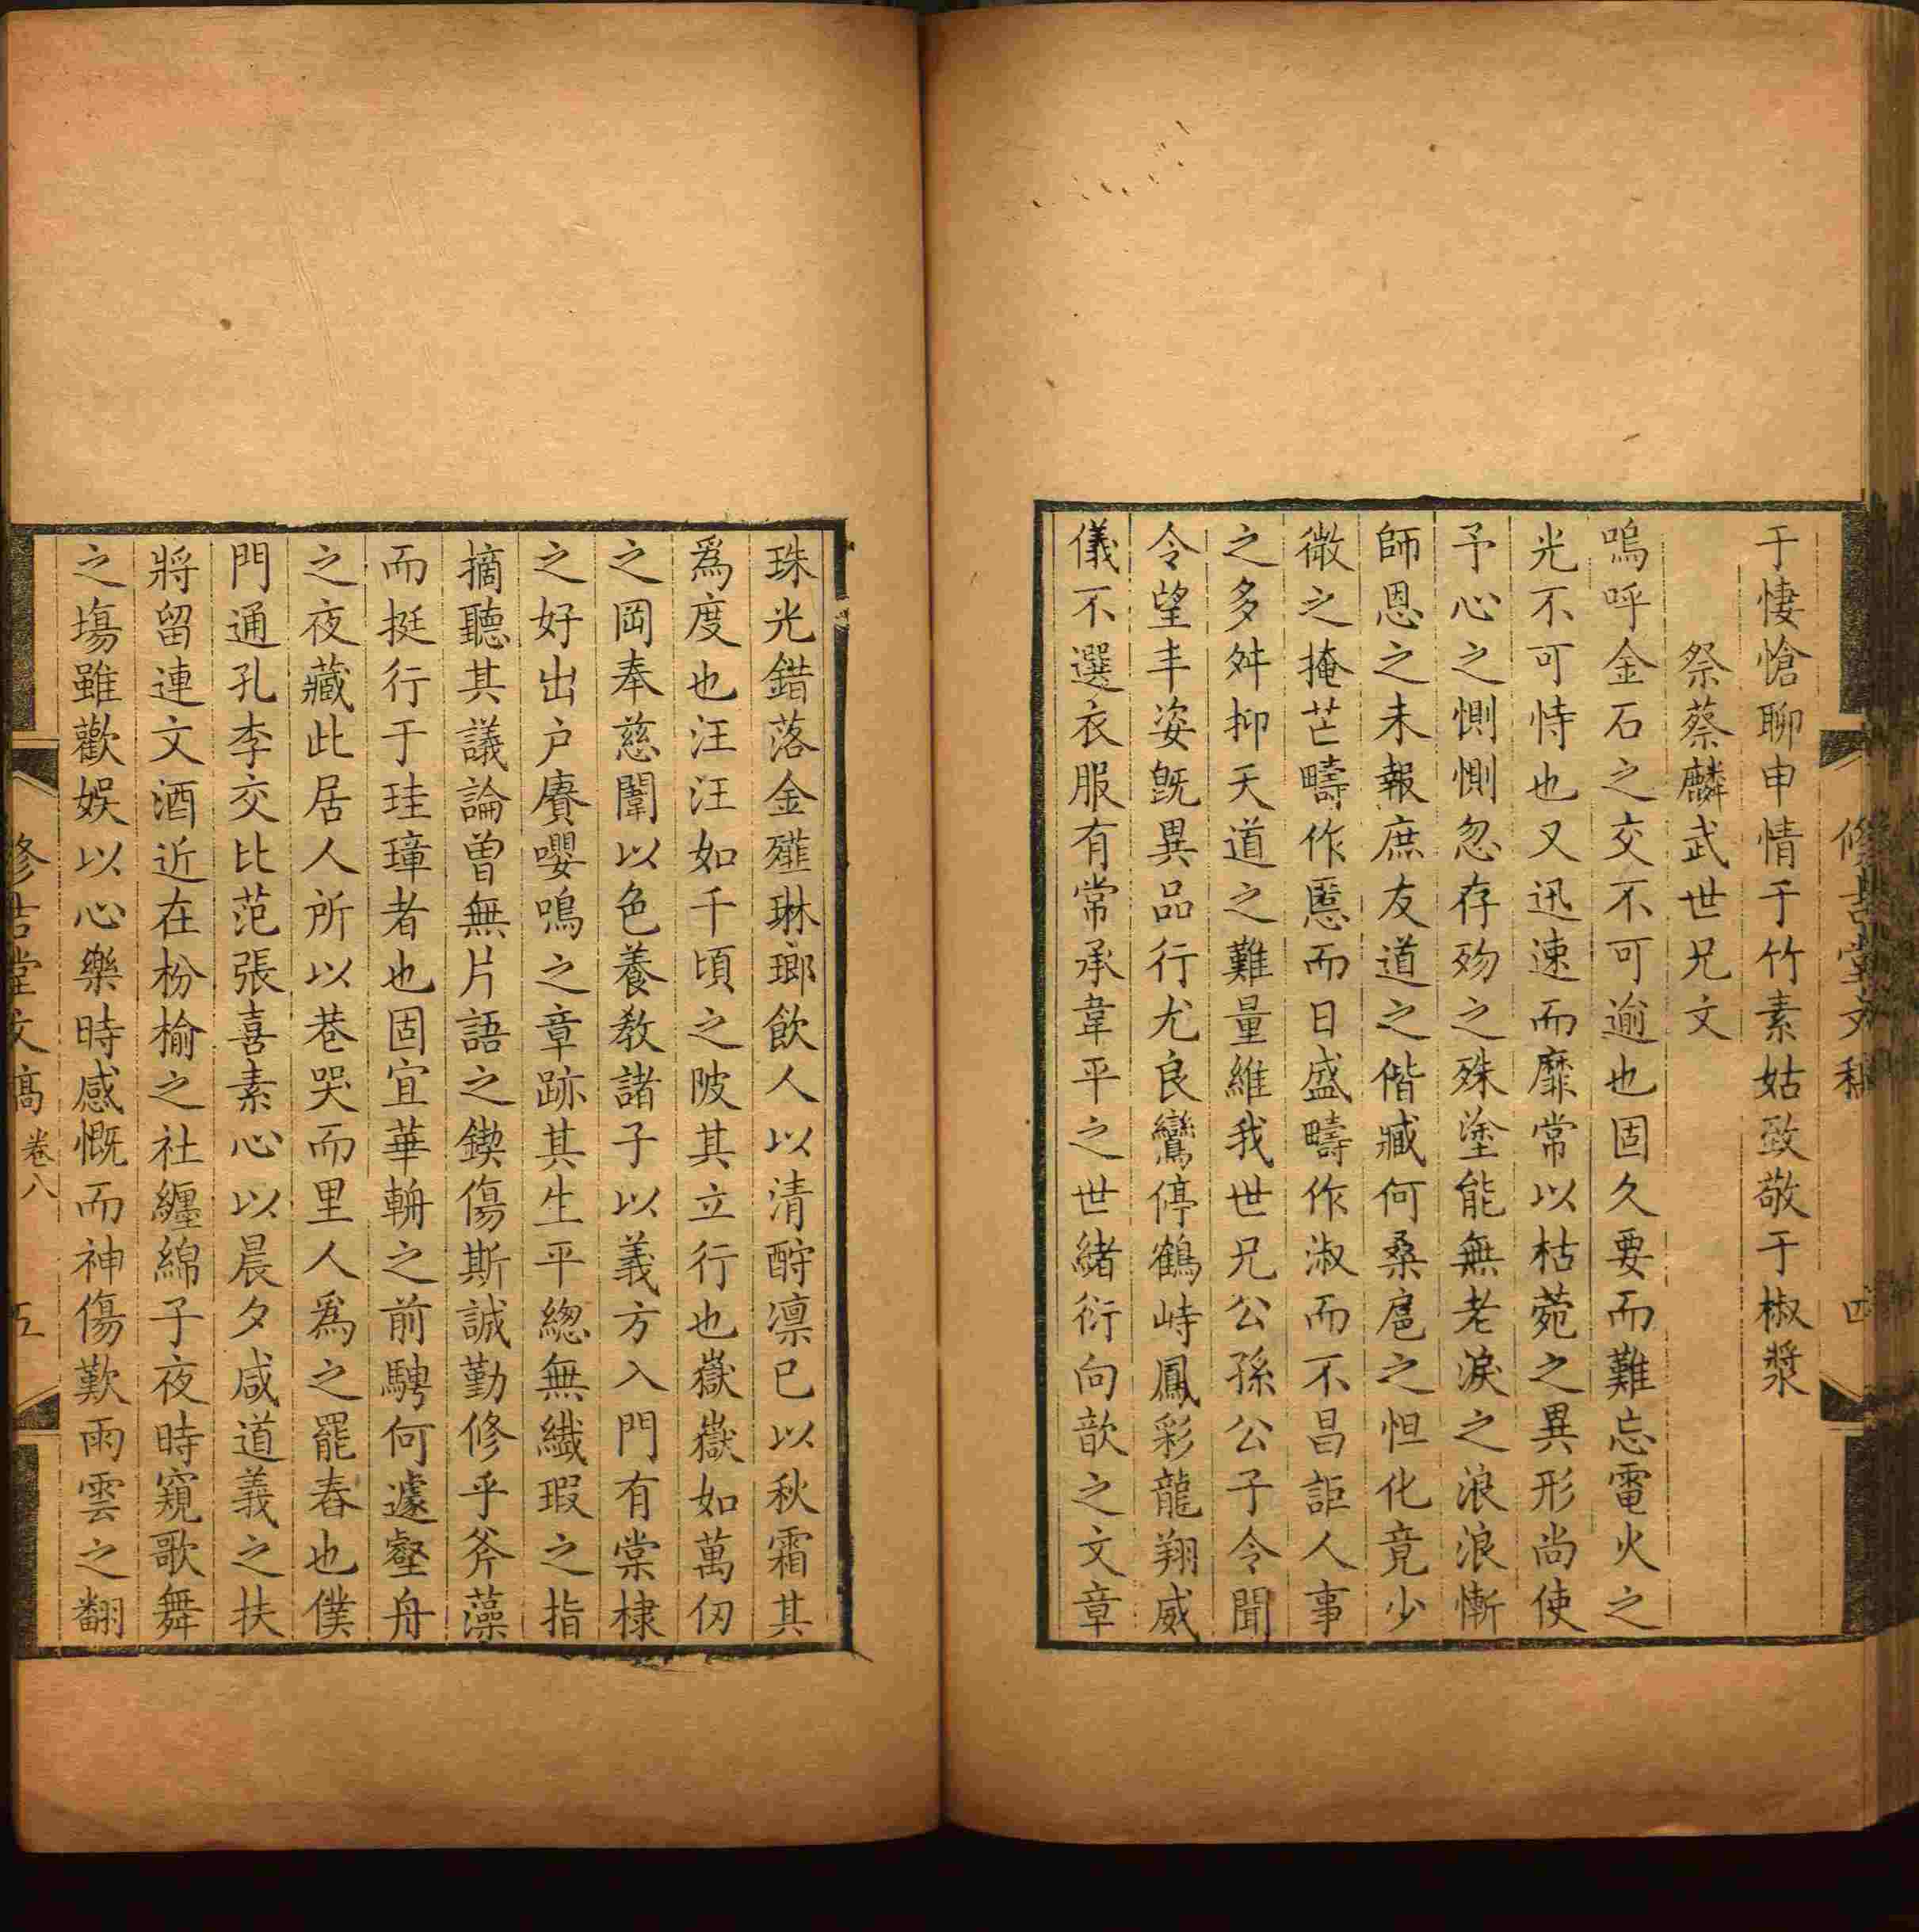 于悽愴聊申情于竹素姑致敬于椒漿
祭蔡麟武世兄文
嗚呼金石之交不可逾也固久要而難忘電火之
光不可恃也又迅速而靡常以枯菀之異形尚使
予心之惻惻忽存歿之殊塗能無老淚之浪浪慚
師恩之未報庶友道之偕臧何桑扈之怛化竟少
微之掩芒疇作慝而日盛疇作淑而不昌詎人事
之多舛抑天道之難量維我世兄公孫公子令聞
令望丰姿旣異品行尤良鸞停鶴峙鳳彩龍翔威
儀不選衣服有常承韋平之世緒衍向歆之文章
珠光錯落金薤琳瑯飲人以清酧凛已以秋霜其
爲度也汪汪如千頃之陂其立行也嶽嶽如萬仞
之岡奉慈闈以色養教諸子以義方入門有棠棣
之好出户賡嚶鳴之章跡其生平緫無纎瑕之指
摘聽其議論曾無片語之鍥傷斯誠勤修乎斧藻
而挺行于珪璋者也固宜華輈之前騁何遽壑舟
之夜藏此居人所以巷哭而里人爲之罷舂也僕
門通孔李交比范張喜素心以晨夕咸道義之扶
將留連文酒近在枌榆之社纏綿子夜時窺歌舞
之塲雖歡娛以心樂時感慨而神傷歎雨雲之翻
修吉堂文稿
卷八
五
修吉堂文稿
四